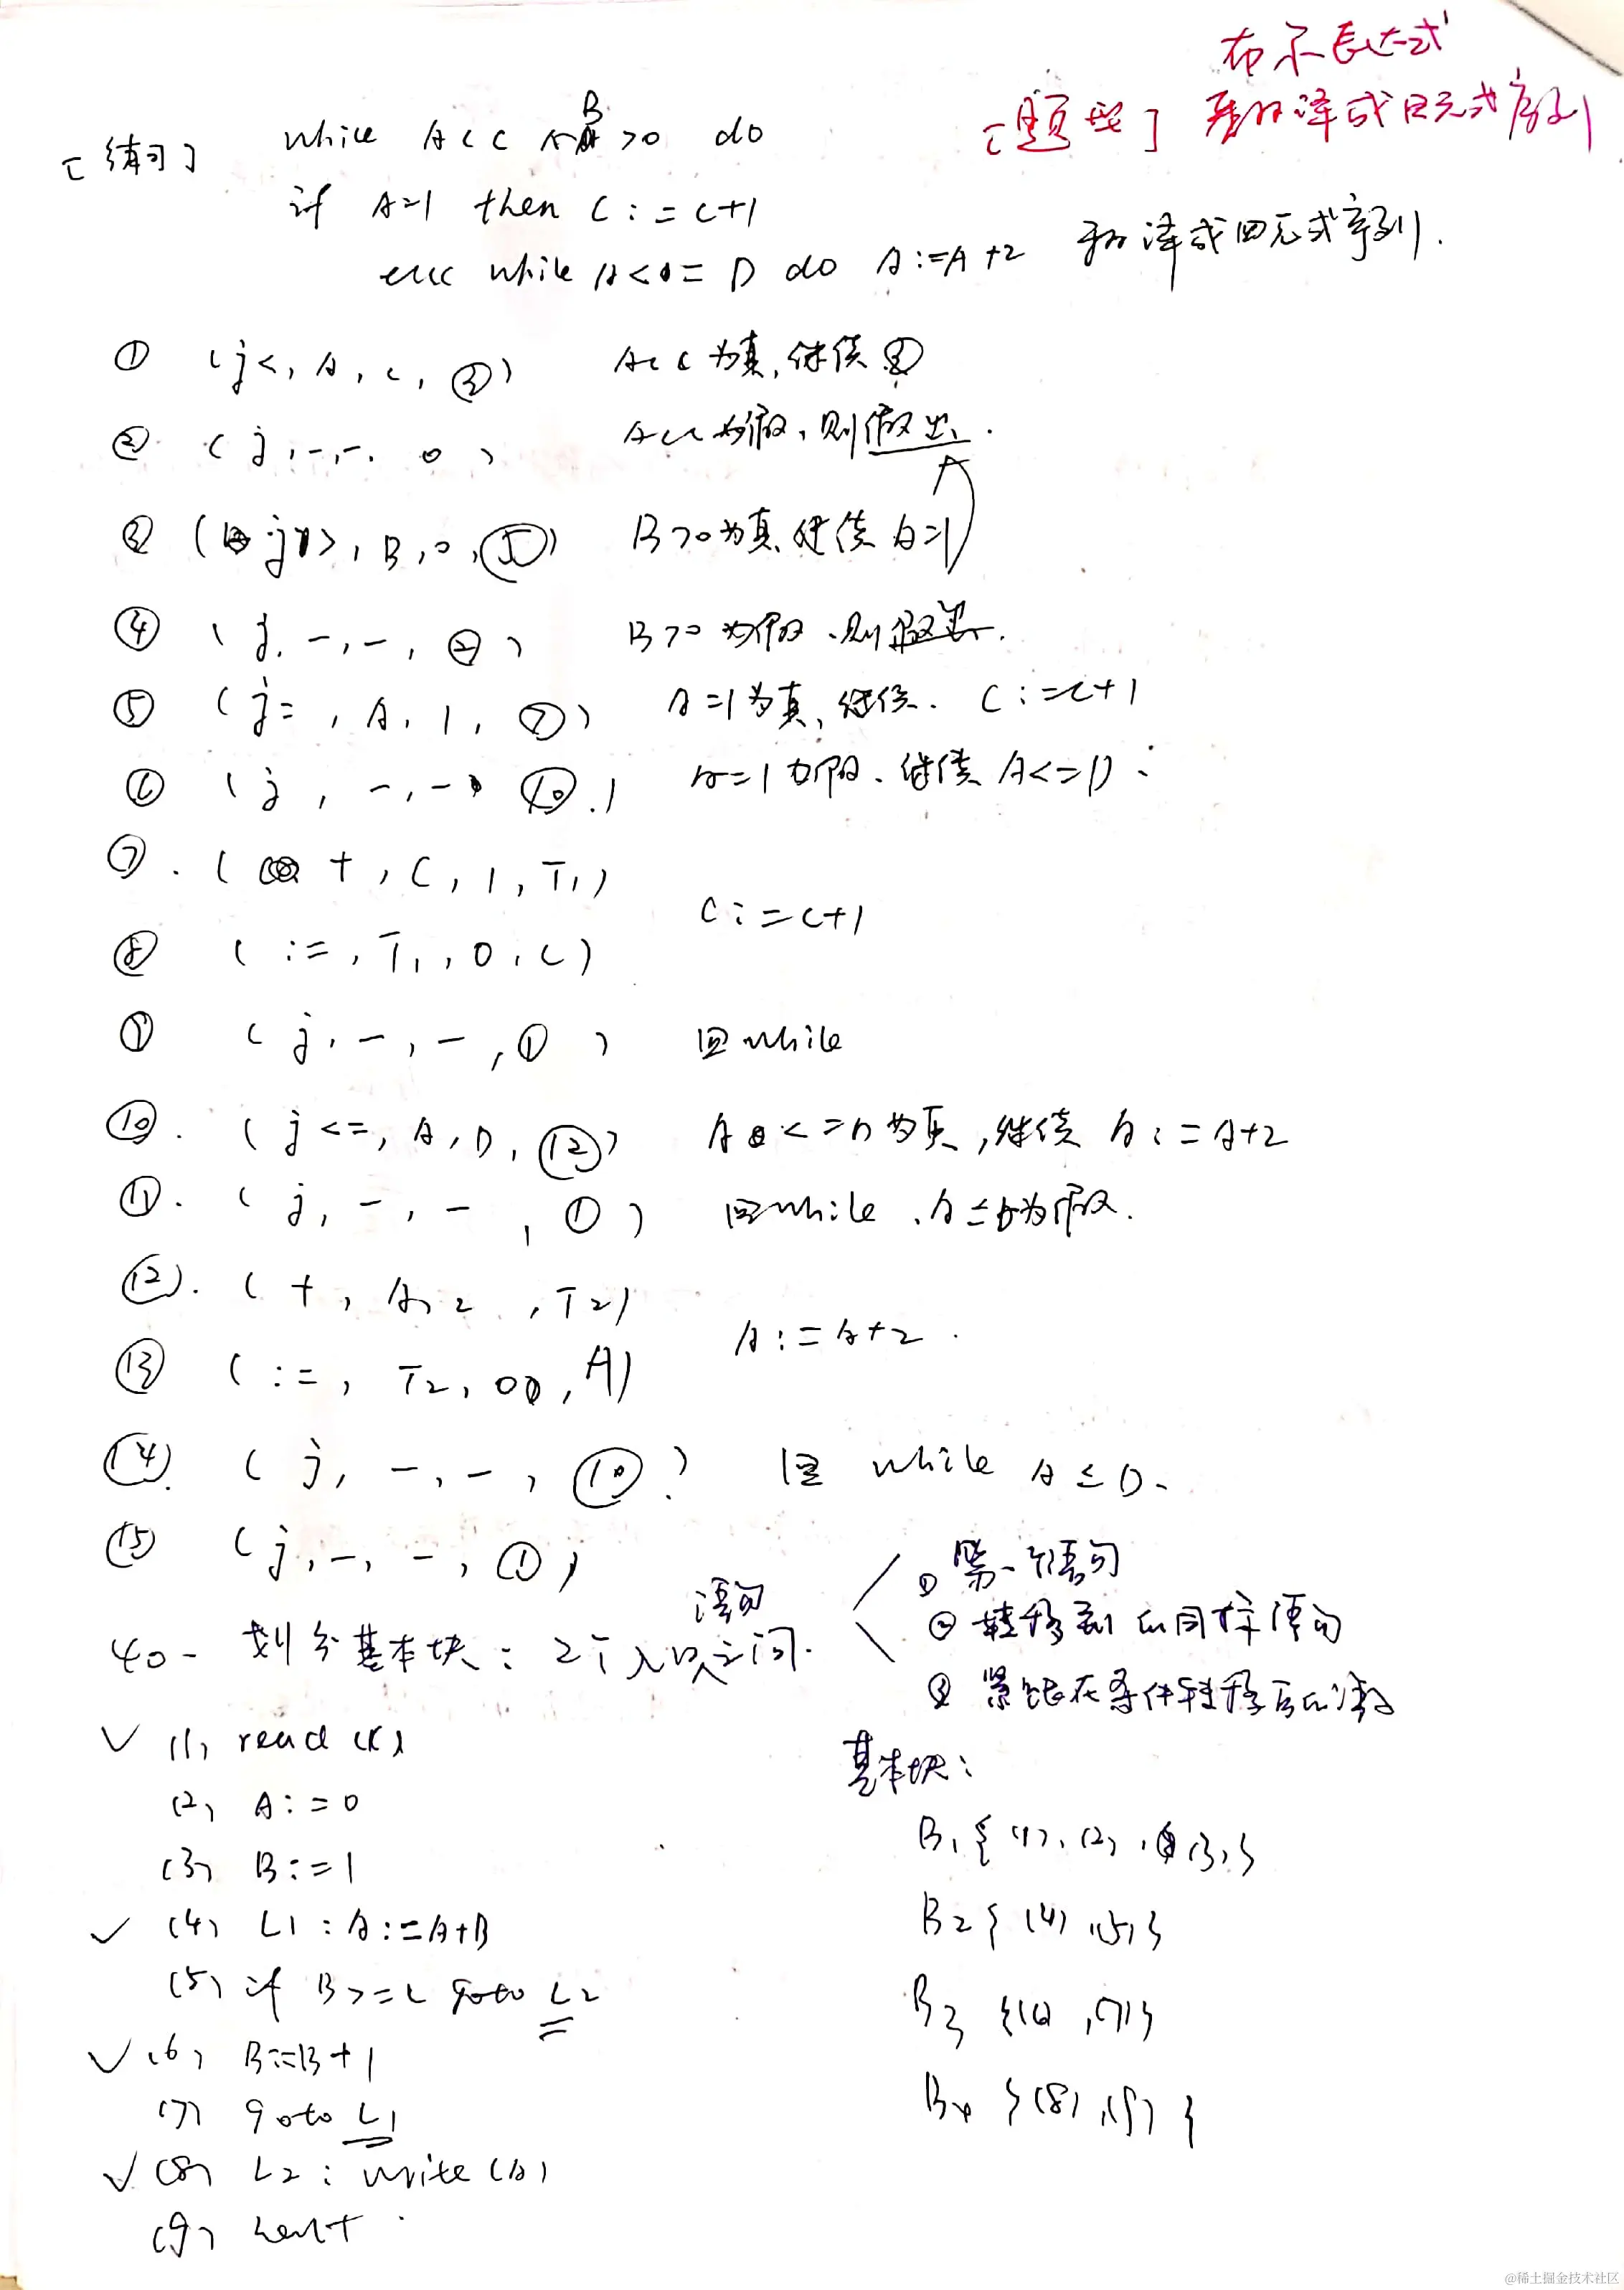 布尔表达式
[题型] 翻译成四元式序列
[练习] while A<C ∧ B>0 do
if A=1 then C:=C+1
else while A<=D do A:=A+2 翻译成四元式序列.
① (j<, A, C, ③) A<C为真,继续③
② (j,-,-, 0) A<C为假,则假出.
③ (j>, B, 0, ⑤) B>0为真,继续 A=1
④ (j,-,-, ②) B>0为假,则假出.
⑤ (j=, A, 1, ⑦) A=1为真,继续. C:=C+1
⑥ (j,-,-, ⑩) A=1为假、继续 A<=D
⑦. (+, C, 1, T1)
C:=C+1
⑧ (:=, T1, 0, C)
⑨ (j,-,-, ①) 回while
⑩. (j<=, A, D, ⑫) A<=D为真,继续 A:=A+2
⑪. (j,-,-, ①) 回while、A≤D为假.
⑫. (+, A, 2, T2)
A:=A+2.
⑬ (:=, T2, 0, A)
⑭. (j,-,-, ⑩) 回 while A≤D.
⑮ (j,-,-, ①)
①第一个语句
40- 划分基本块: 2个入口语句之间.
② 转移到的目标语句
③ 紧跟在条件转移后的语句
✓ (1) read(C)
基本块:
(2) A:=0
B1 { (1), (2), (3) }
(3) B:=1
✓ (4) L1:A:=A+B
B2 { (4), (5) }
(5) if B>=C goto L2
B3 { (6), (7) }
✓ (6) B:=B+1
(7) goto L1
B4 { (8), (9) }
✓ (8) L2: write(A)
(9) halt.
@稀土掘金技术社区